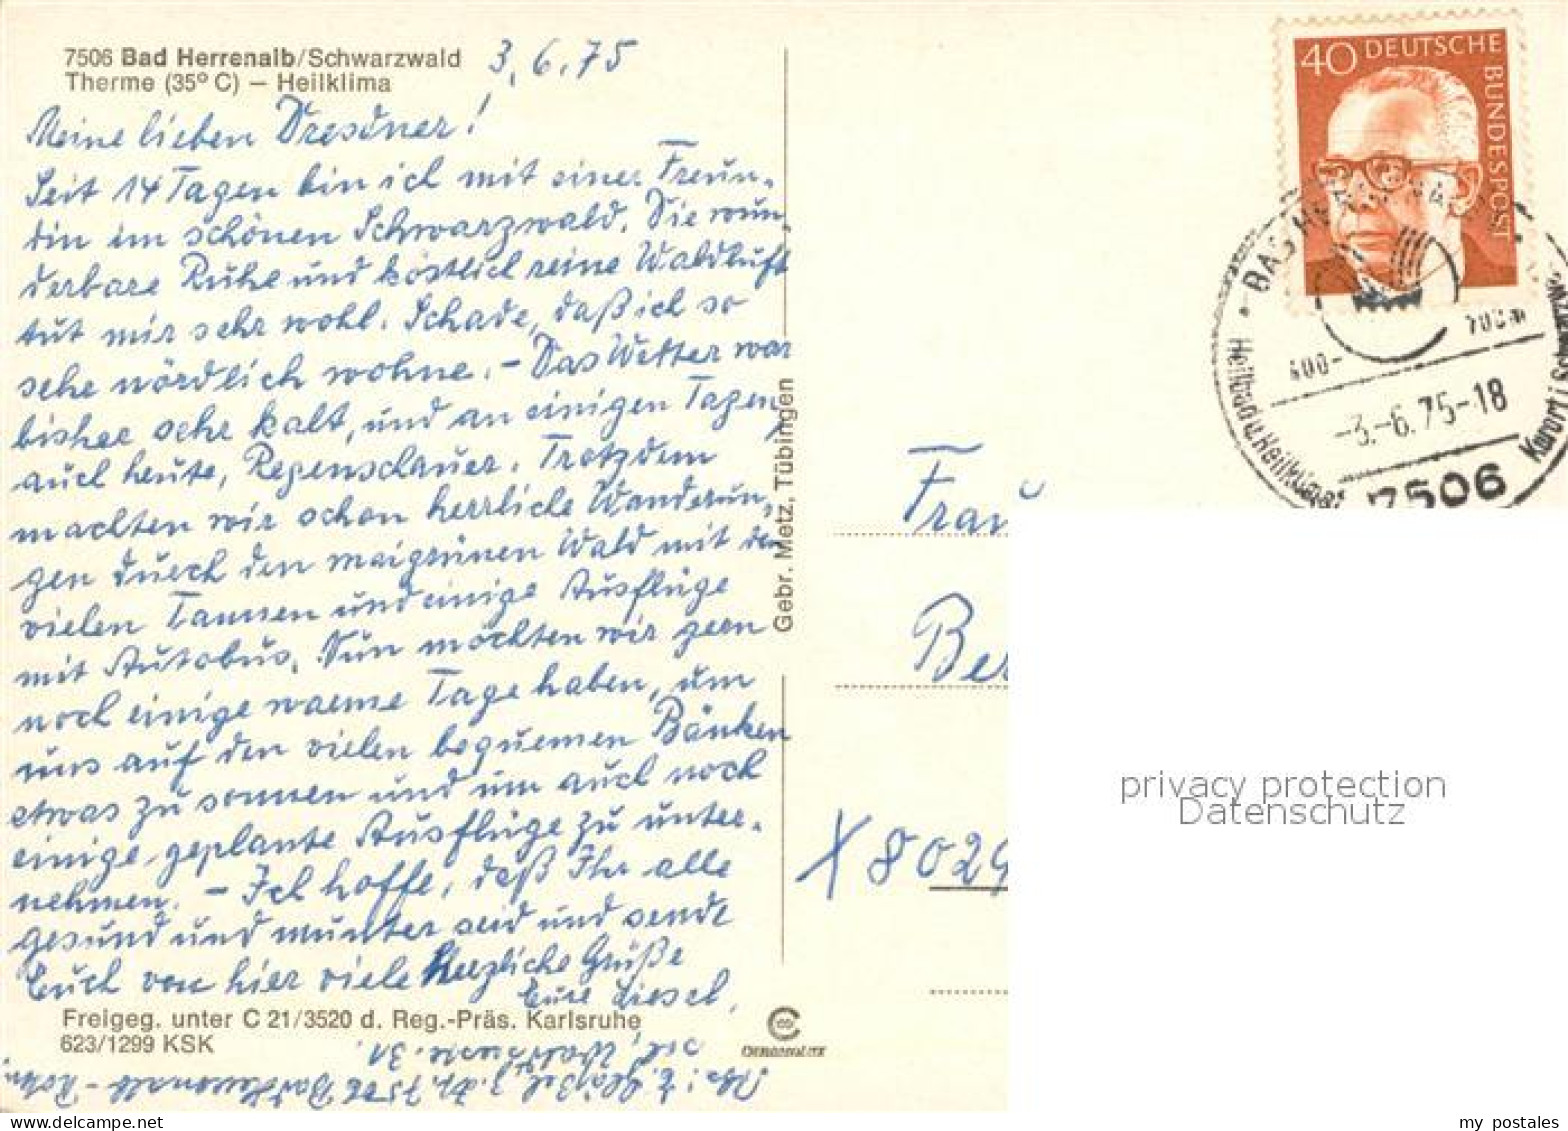 7506 Bad Herrenalb/Schwarzwald
Therme (35° C) — Heilklima
3.6.75
Meine lieben Dresdner!
Seit 14 Tagen bin ich mit einer Freun-
din im schönen Schwarzwald. Die wun-
derbare Ruhe und köstlich reine Waldluft
tut mir sehr wohl. Schade, daß ich so
sehr nördlich wohne. - Das Wetter war
bisher sehr kalt, und an einigen Tagen,
auch heute, Regenschauer. Trotzdem
machten wir schon herrliche Wanderun-
gen durch den maigrünen Wald mit den
vielen Tannen und einige Ausflüge
mit Autobus. Nun möchten wir gern
noch einige warme Tage haben, um
uns auf den vielen bequemen Bänken
etwas zu sonnen und um auch noch
einige geplante Ausflüge zu unter-
nehmen. - Ich hoffe, daß Ihr alle
gesund und munter seid und sende
Euch von hier viele herzliche Grüße
Eure Liesel.
Freigeg. unter C 21/3520 d. Reg.-Präs. Karlsruhe
623/1299 KSK
Abs: E. z. Zt. 7506 Bad Herrenalb -
Gebr. Metz, Tübingen
40 DEUTSCHE BUNDESPOST
BAD HERRENALB
400- 700m
-3.-6.75-18
7506
Heilbad u. Heilklimat.
Kurort i. Schwarzw.
Frau
Ber
X 8029
privacy protection
Datenschutz
www.delcampe.net
my_postales